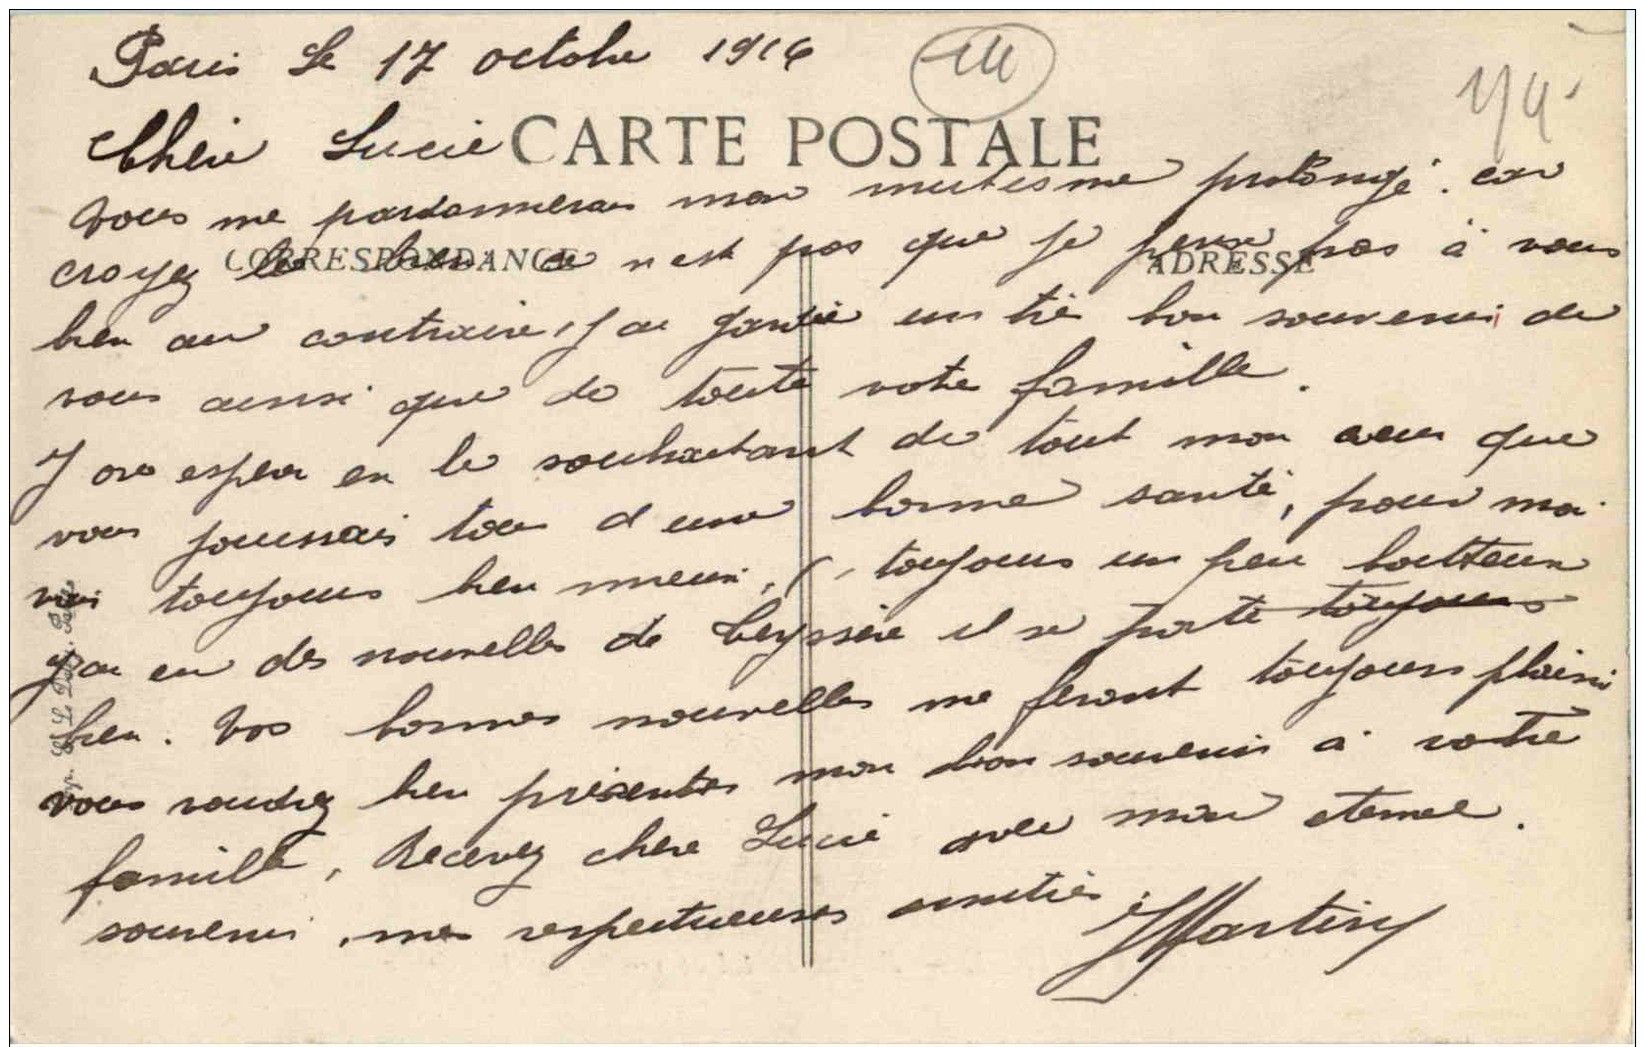 Paris le 17 octobre 1916
CARTE POSTALE
Chère Lucie
Vous me pardonnerai mon mutisme prolongé. car
CORRESPONDANCE
ADRESSE
croyez le bien ce n est pas que je pense pas à vous
bien au contraire, j ai gardé un très bon souvenir de
vous ainsi que de toute votre famille.
J ose esperer en le souhaitant de tout mon coeur que
vous jouissais tous d une bonne santé, pour moi
vais toujours bien mieux, toujours un peu boitteux
J ai eu des nouvelles de Teyssère il se porte toujours
bien. Vos bonnes nouvelles me feront toujours plaisir
vous voudrez bien présenter mon bon souvenir à votre
famille, Recevez chère Lucie avec mon eternel.
souvenir, mes respectueuses amitiés
Martin